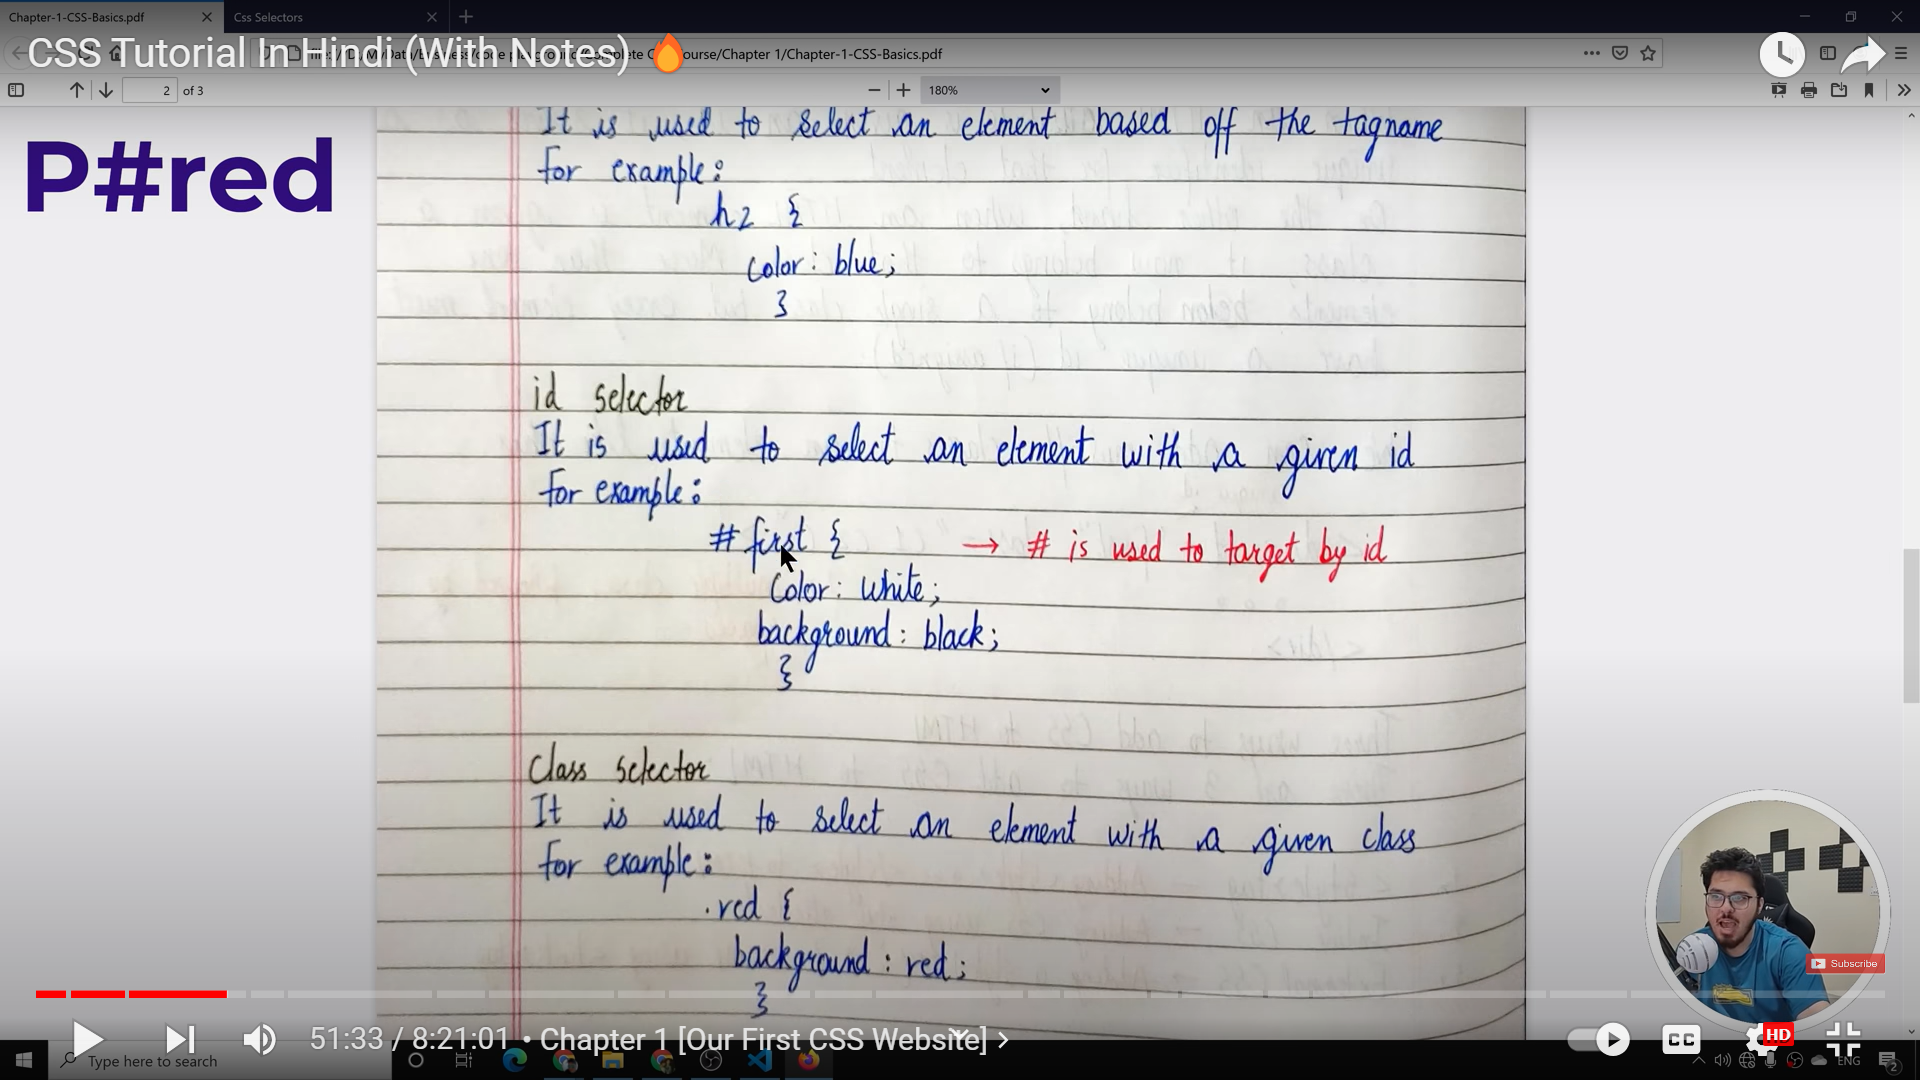 Chapter-1-CSS-Basics.pdf
Css Selectors
CSS Tutorial In Hindi (With Notes) 🔥
ourse/Chapter 1/Chapter-1-CSS-Basics.pdf
2 of 3
180%
P#red
It is used to select an element based off the tagname
for example:
h2 {
color: blue;
}
id selector
It is used to select an element with a given id
for example:
# first { → # is used to target by id
Color: white;
background: black;
}
Class selector
It is used to select an element with a given class
for example:
.red {
background: red;
}
Subscribe
51:33 / 8:21:01 • Chapter 1 [Our First CSS Website] >
CC
HD
Type here to search
ENG
2